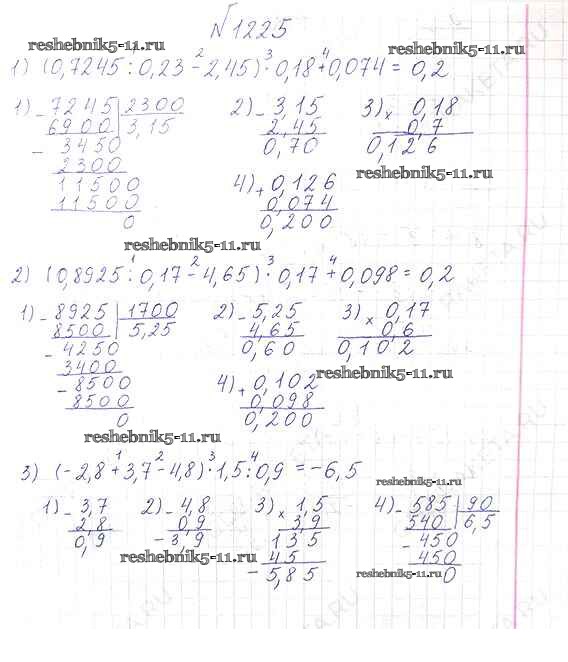 №1225
reshebnik5-11.ru
1) (0,7245 : 0,23 -² 2,45) ·³ 0,18 +⁴ 0,074 = 0,2
1) - 7245 | 2300   2) - 3,15   3) x 0,18
6900 | 3,15   2,45   0,7
- 3450   0,70   0,126
2300   reshebnik5-11.ru
11500   4) + 0,126
11500   0,074
0   0,200
reshebnik5-11.ru
2) (0,8925 :¹ 0,17 -² 4,65) ·³ 0,17 +⁴ 0,098 = 0,2
1) - 8925 | 1700   2) - 5,25   3) x 0,17
8500 | 5,25   4,65   0,6
- 4250   0,60   0,102
3400   reshebnik5-11.ru
- 8500   4) + 0,102
8500   0,098
0   0,200
reshebnik5-11.ru
3) (-2,8 +¹ 3,7 -² 4,8) ·³ 1,5 :⁴ 0,9 = -6,5
1) - 3,7   2) - 4,8   3) x 1,5   4) - 585 | 90
2,8   0,9   3,9   540 | 6,5
0,9   - 3,9   135   - 450
reshebnik5-11.ru   45   450
- 5,85   reshebnik5-11.ru   0